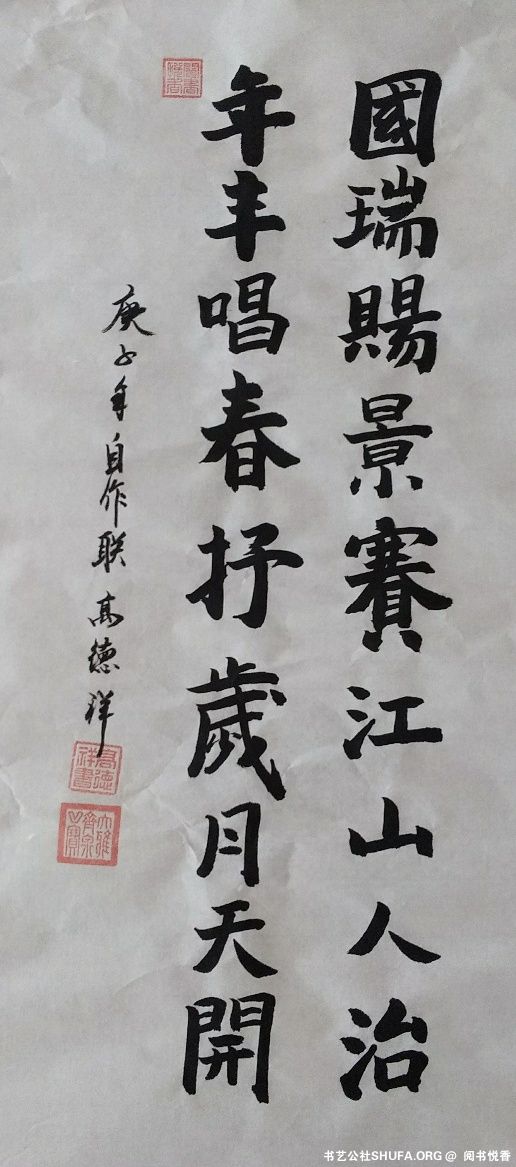 國瑞賜景賽江山人治
年丰唱春抒歲月天開
庚子年自作联高德祥
高德祥書
书艺公社SHUFA.ORG@ 阅书悦香